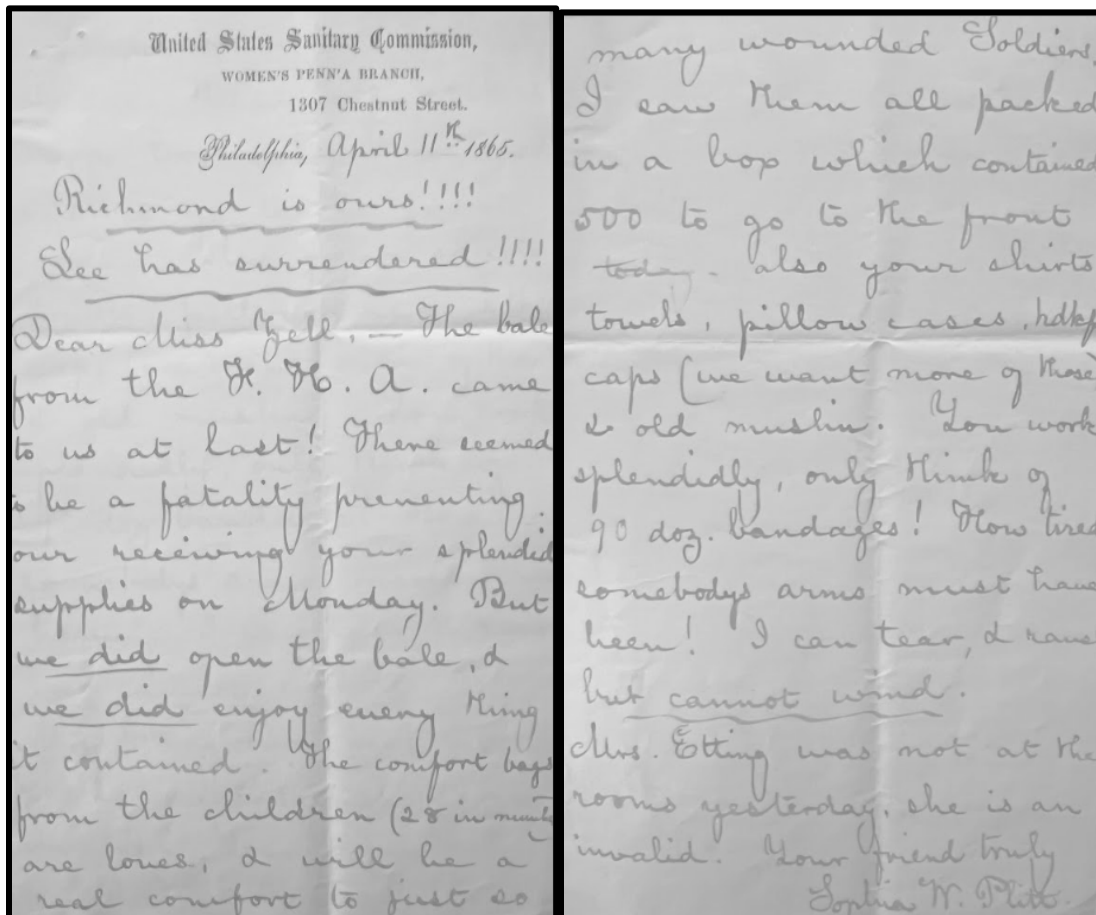 United States Sanitary Commission,
WOMEN'S PENN'A BRANCH,
1307 Chestnut Street.
Philadelphia, April 11th 1865.
Richmond is ours!!!!
Lee has surrendered!!!!
Dear Miss Zell, — The bale
from the H. H. A. came
to us at last! There seemed
to be a fatality preventing
our receiving your splendid
supplies on Monday. But
we did open the bale, &
we did enjoy every thing
it contained. The comfort bags
from the children (28 in number)
are loves, & will be a
real comfort to just so
many wounded Soldiers.
I saw them all packed
in a box which contained
500 to go to the front
today. also your shirts
towels, pillow cases, hdkfs
caps (we want more of those)
& old muslin. You work
splendidly, only think of
90 doz. bandages! How tired
somebodys arms must have
been! I can tear, &
but cannot wind.
Mrs. Etting was not at the
rooms yesterday, she is an
invalid. Your friend truly
Sophia W. Plitt.